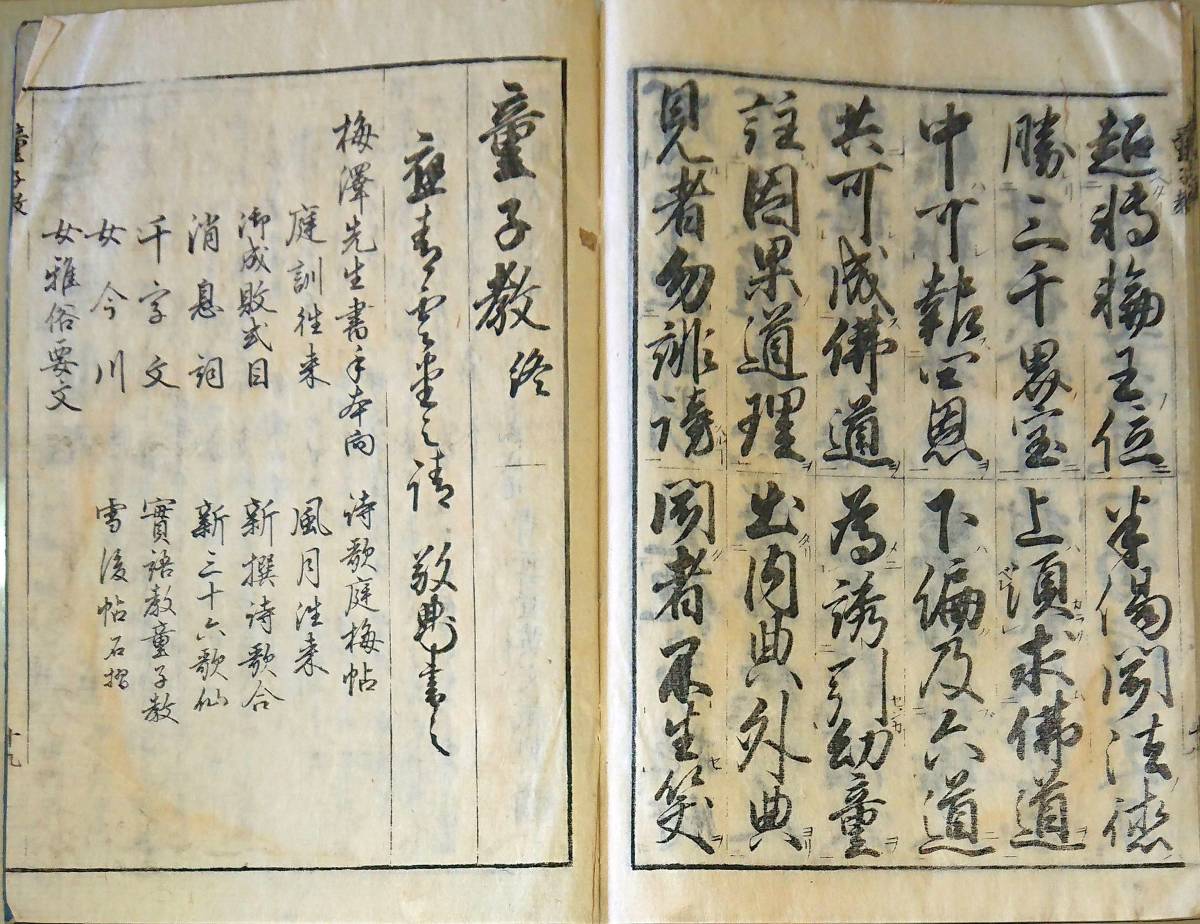 超轉輪王位 半偈聞法徳
勝三千界宝 上須求佛道
中可報四恩 下徧及六道
共可成佛道 為誘引幼童
註因果道理 出内典外典
見者勿誹謗 聞者不生笑
童子教終
應青雲堂之請 敬典書之
梅澤先生書手本向 诗歌庭梅帖
庭訓往来 風月往来
御成敗式目 新撰诗歌合
消息詞 新三十六歌仙
千字文 實語教童子教
女今川 雪後帖石摺
女雅俗要文
童子教
十九